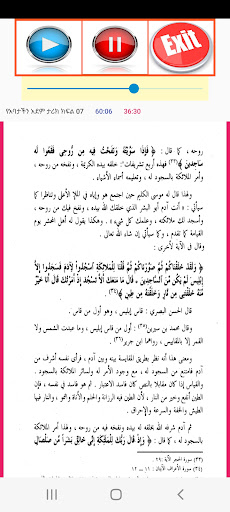 Exit
የአባታችን አደም ታሪክ ክፍል 07 60:06 36:30
روحه ، كما قال : ﴿ فَإِذَا سَوَّيْتُهُ وَنَفَخْتُ فِيهِ مِن رُّوحِي فَقَعُوا لَهُ
سَاجِدِينَ ﴾(٣٣) فهذه أربع تشريفات : خلقه له بيده الكريمة ، ونفخه من روحه ،
وأمر الملائكة بالسجود له ، وتعليمه أسماء الأشياء .
ولهذا قال له موسى الكليم حين اجتمع هو وإياه في الملإ الأعلى وتناظرا كما
سيأتي : « أنت آدم أبو البشر الذي خلقك الله بيده ، ونفخ فيك من روحه ،
وأسجد لك ملائكته ، وعلمك كل شيء » . وهكذا يقول له أهل المحشر يوم
القيامة كما تقدم ، وكما سيأتي إن شاء الله تعالى .
وقال في الآية الأخرى :
﴿ وَلَقَدْ خَلَقْنَاكُمْ ثُمَّ صَوَّرْنَاكُمْ ثُمَّ قُلْنَا لِلْمَلَائِكَةِ اسْجُدُوا لِآدَمَ فَسَجَدُوا إِلَّا
إِبْلِيسَ لَمْ يَكُن مِّنَ السَّاجِدِينَ * قَالَ مَا مَنَعَكَ أَلَّا تَسْجُدَ إِذْ أَمَرْتُكَ قَالَ أَنَا خَيْرٌ
مِّنْهُ خَلَقْتَنِي مِن نَّارٍ وَخَلَقْتَهُ مِن طِينٍ ﴾(٣٤)
قال الحسن البصري : قاس إبليس ، وهو أول من قاس .
وقال محمد بن سيرين : أول من قاس إبليس ، وما عبدت الشمس ولا
القمر إلا بالمقاييس . رواهما ابن جرير .
ومعنى هذا أنه نظر نفسه بطريق المقايسة بينه وبين آدم ، فرأى نفسه أشرف من
آدم فامتنع من السجود له ، مع وجود الأمر له ولسائر الملائكة بالسجود .
والقياس إذا كان مقابلا بالنص كان فاسد الاعتبار . ثم هو فاسد في نفسه ، فإن
الطين أنفع وخير من النار ، لأن الطين فيه الرزانة والحلم والأناة والنمو ، والنار فيها
الطيش والخفة والسرعة والإحراق .
ثم آدم شرفه الله بخلقه له بيده ونفخه فيه من روحه ، ولهذا أمر الملائكة
بالسجود له ، كما قال : ﴿ وَإِذْ قَالَ رَبُّكَ لِلْمَلَائِكَةِ إِنِّي خَالِقٌ بَشَرًا مِّن صَلْصَالٍ
(٣٣) سورة الحجر الآية : ٢٩ .
(٣٤) سورة الأعراف الآيتان : ١١ - ١٢